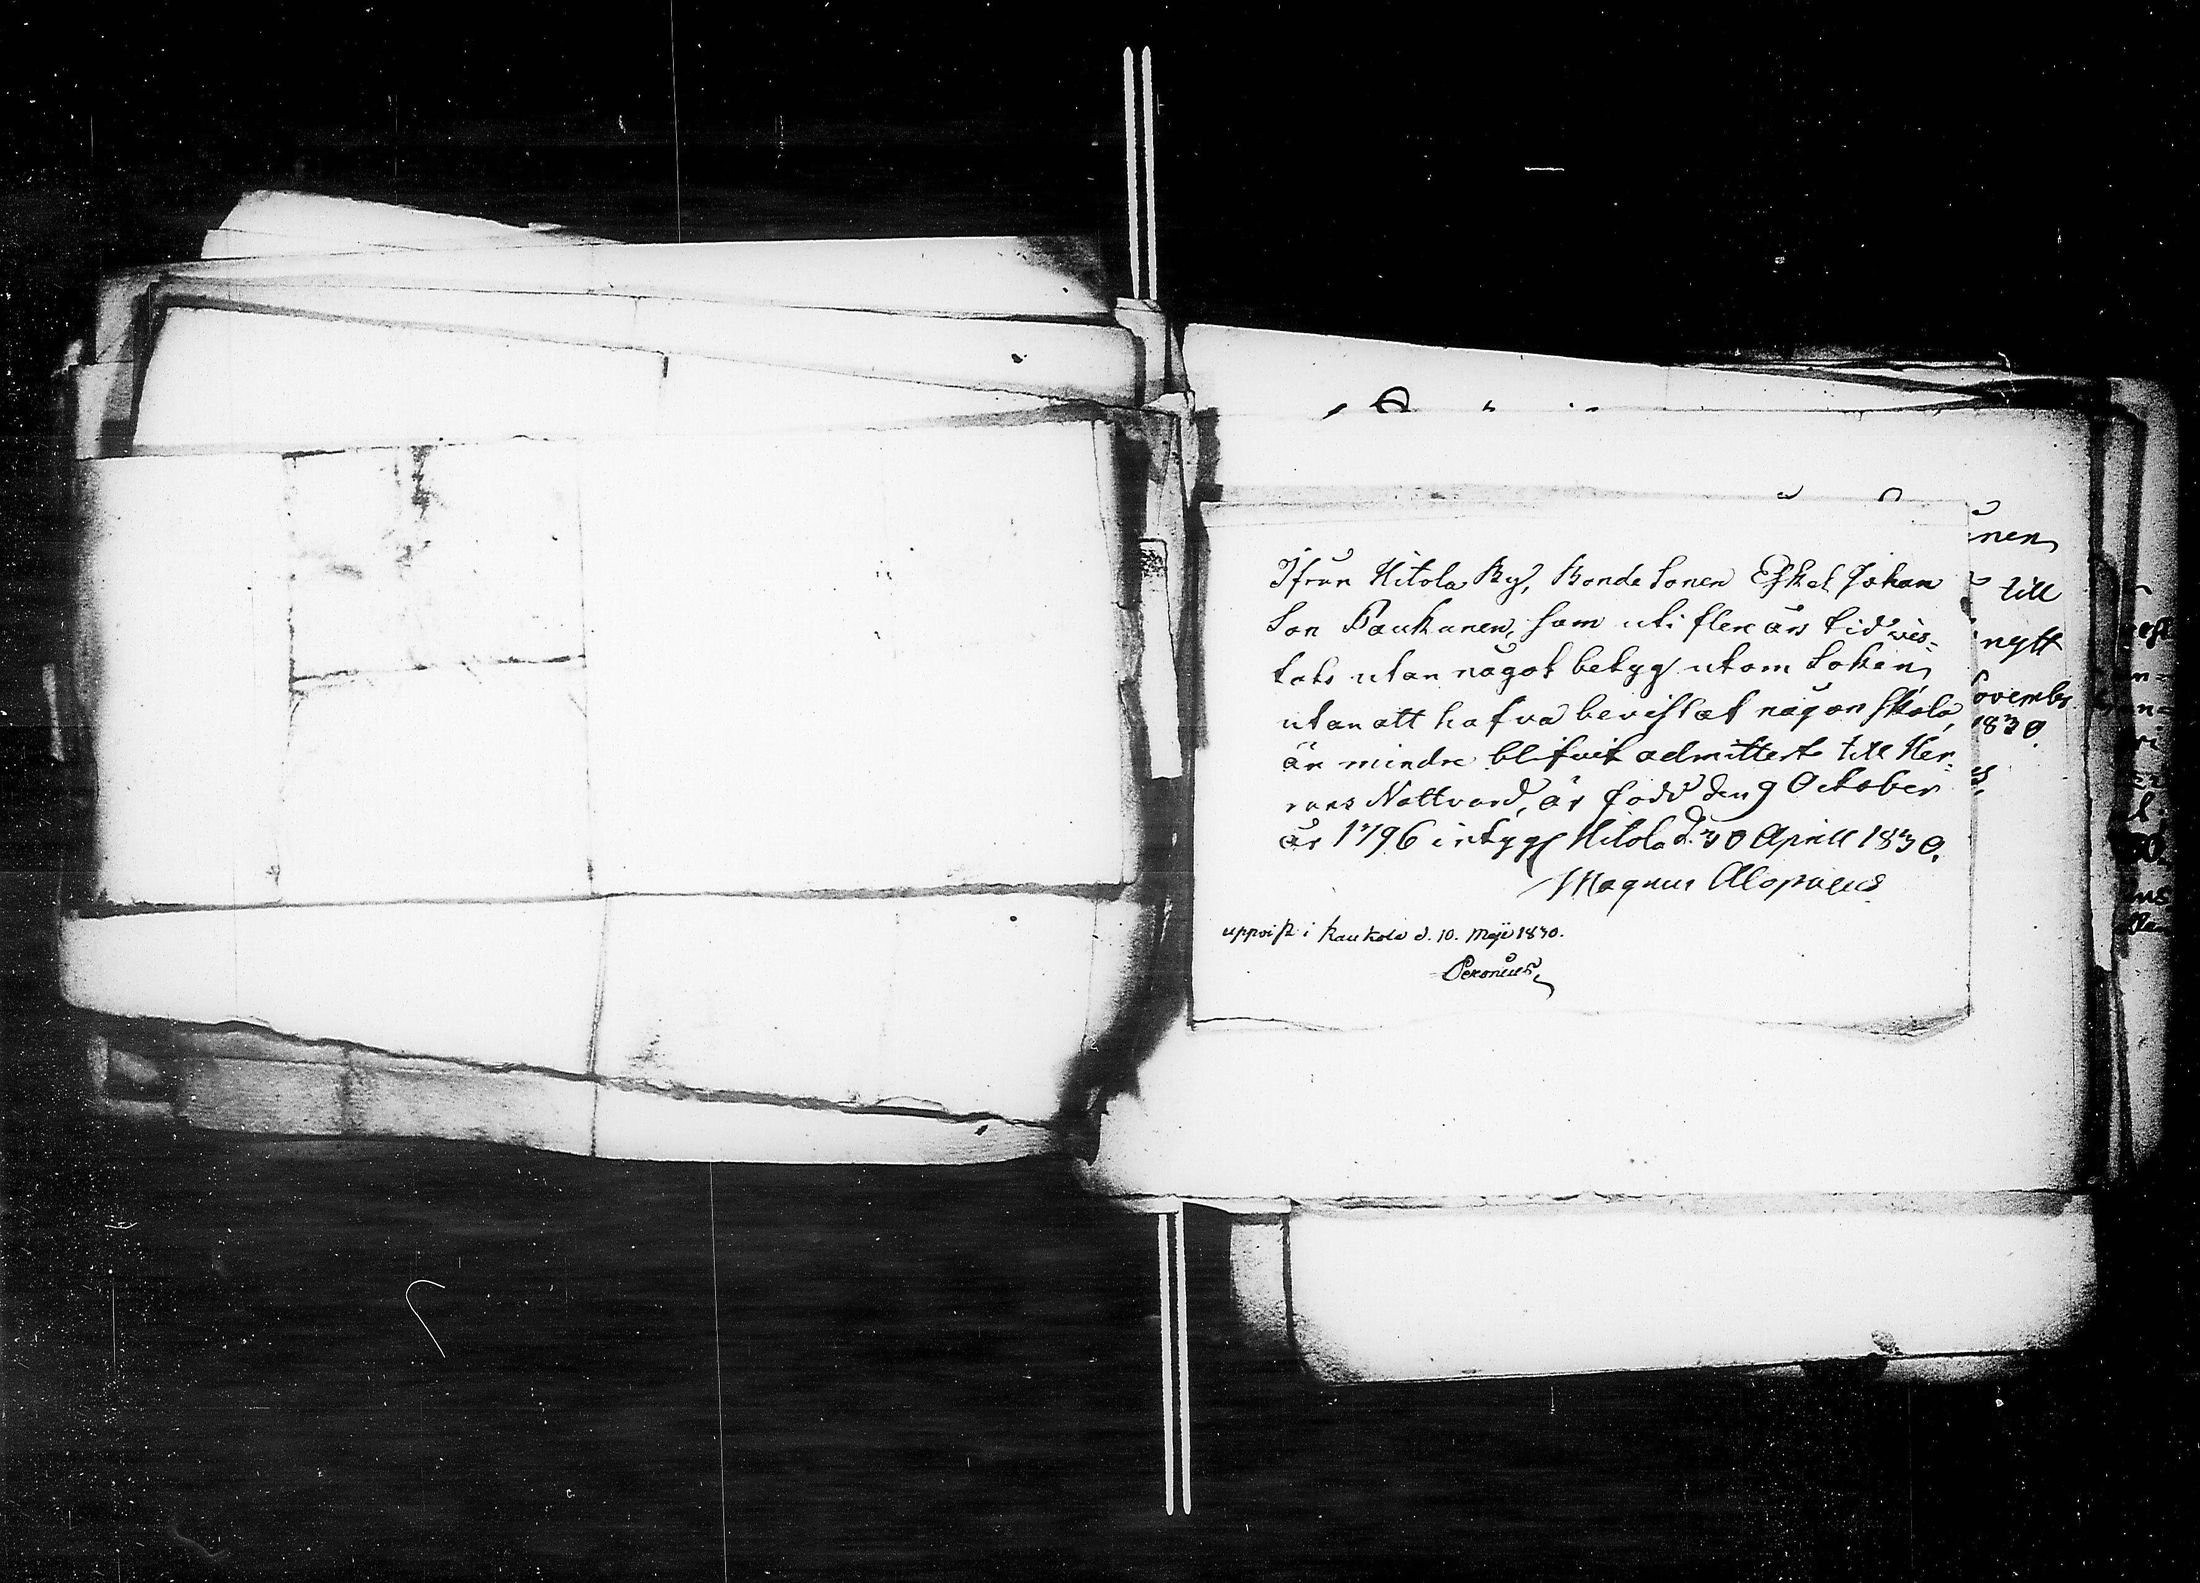 Ifrån Hitola By, Bonde Sonen Eskel Johan
Son Paukunen, som uti flere års tid vis-
tats utan något betyg utom Soken,
utan att hafva bevistat någon Skola,
än mindre blifvit admittert till Her-
rans Nattvard, är född den 9 October
år 1796 intygs Hitola d. 30 Aprill 1830.
Magnus Alopaeus
uppvist i Kaukola d. 10. Maji 1830.
nen
till
nytt
ovembr
1830.